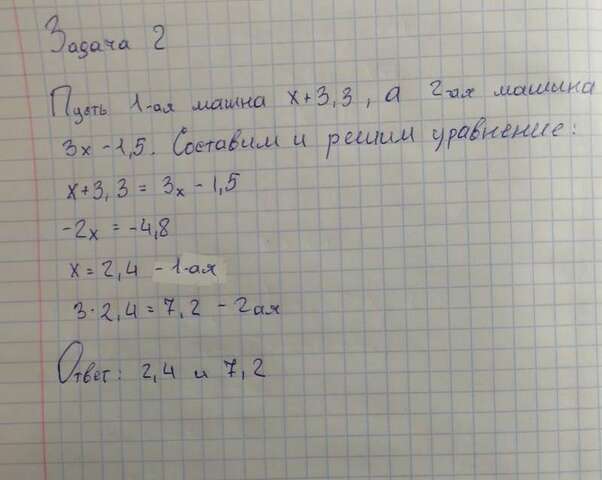 Задача 2
Пусть 1-ая машна x+3,3, а 2-ая машина
3x-1,5. Составим и решим уравнение:
x+3,3=3x-1,5
-2x=-4,8
x=2,4 - 1-ая
3·2,4=7,2 - 2ая
Ответ: 2,4 и 7,2